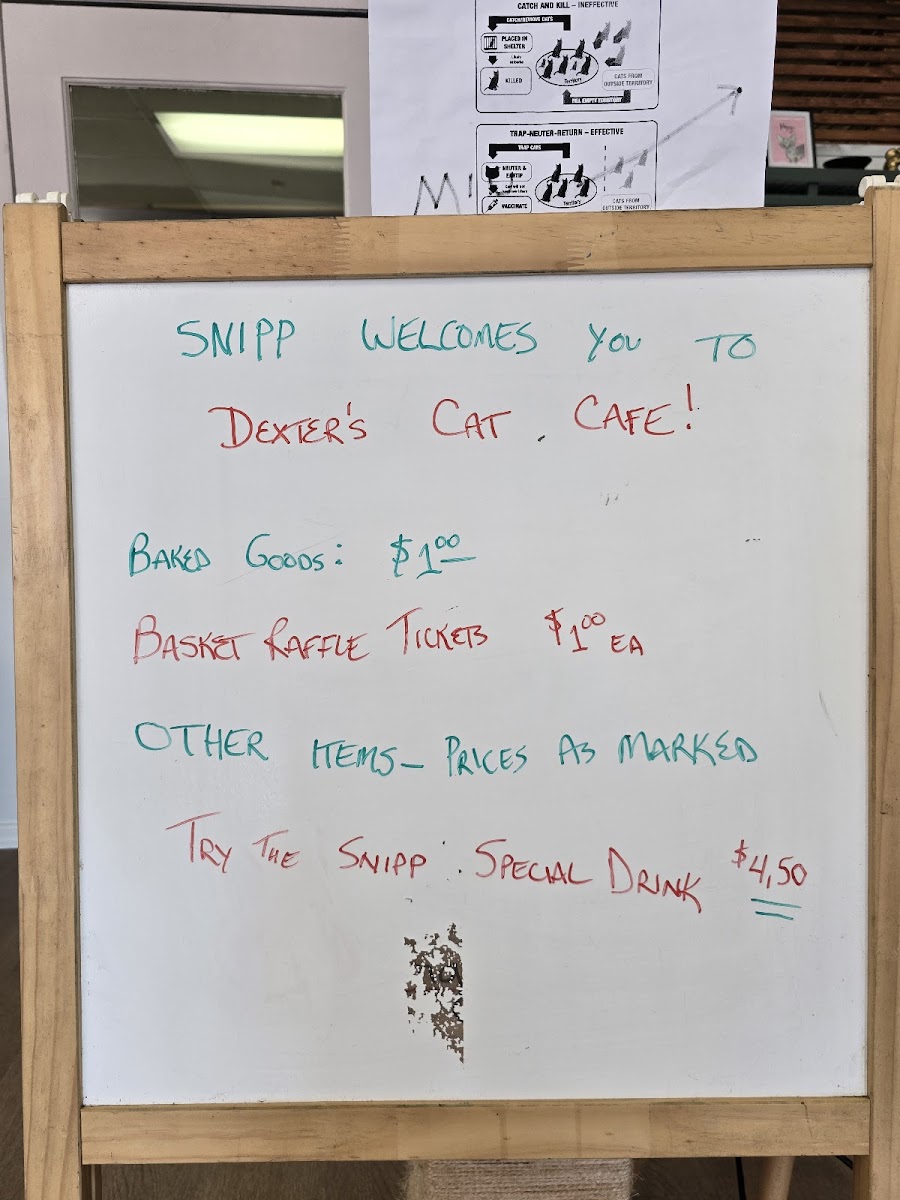 CATCH AND KILL – INEFFECTIVE
CATCH/REMOVE CATS
PLACED IN
SHELTER
KILLED
Territory
CATS FROM
OUTSIDE TERRITORY
FILL EMPTY TERRITORY
TRAP-NEUTER-RETURN – EFFECTIVE
TRAP CATS
NEUTER &
EARTIP
VACCINATE
Territory
CATS FROM
OUTSIDE TERRITORY
SNIPP WELCOMES YOU TO
DEXTER'S CAT CAFE!
BAKED GOODS: $1.00
BASKET RAFFLE TICKETS $1.00 EA
OTHER ITEMS – PRICES AS MARKED
TRY THE SNIPP SPECIAL DRINK $4,50